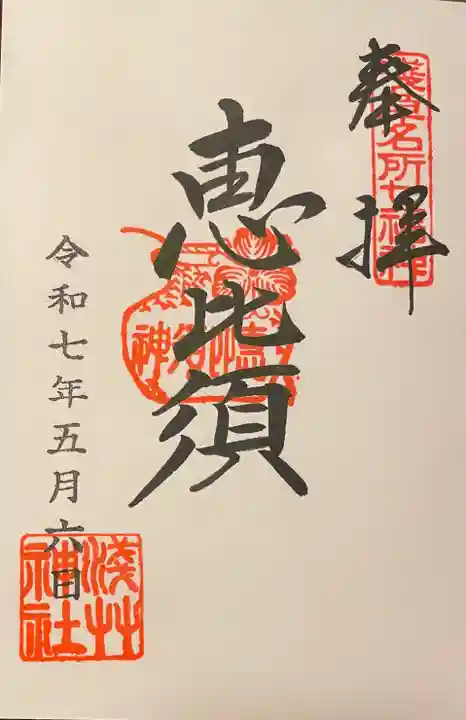 奉拝
浅草名所七福神
恵比須
令和七年五月六日
淺草神社